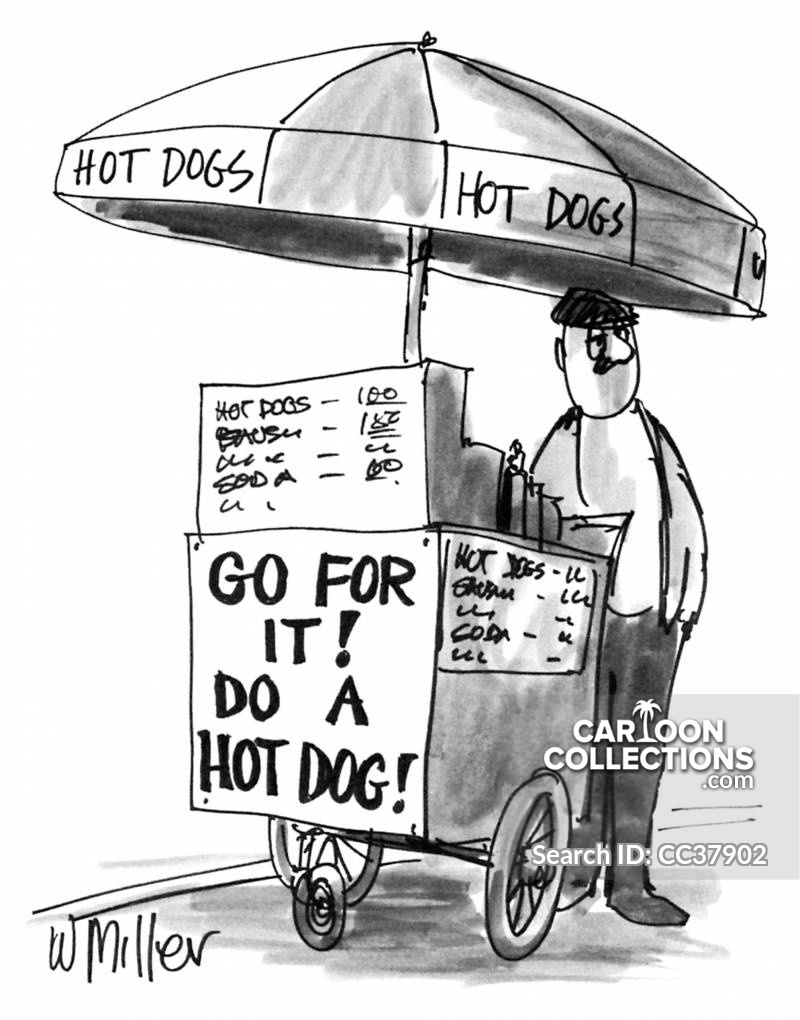 HOT DOGS
HOT DOGS
HOT DOGS - 100
SODA - 60
GO FOR
IT!
DO A
HOT DOG!
HOT DOGS -
SODA -
CARTOON
COLLECTIONS
.com
Search ID: CC37902
W Miller